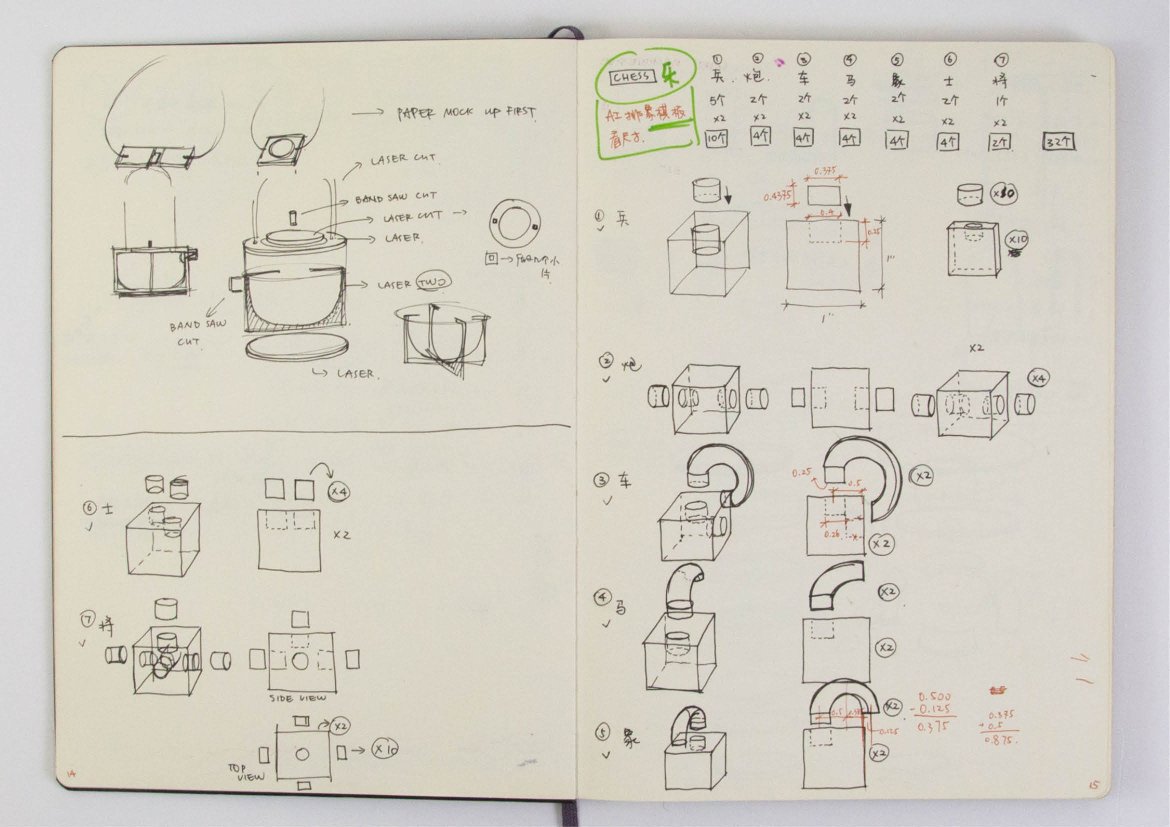 PAPER MOCK UP FIRST.
LASER CUT.
BAND SAW CUT
LASER CUT
LASER.
LASER TWO
BAND SAW
CUT.
LASER.
⑥ 士
×4
×2
⑦ 将
SIDE VIEW
×2
TOP
VIEW
×10
14
CHESS 乐
① ② ③ ④ ⑤ ⑥ ⑦
兵. 炮. 车 马 象 士 将
5个 2个 2个 2个 2个 2个 1个
×2 ×2 ×2 ×2 ×2 ×2 ×2
10个 4个 4个 4个 4个 4个 2个 32个
看尺寸.
① 兵
0.375
0.4375
0.4
0.25
1"
1"
×10
×10
② 炮
×2
×4
③ 车
0.25
0.5
0.26
×2
×2
④ 马
×2
×2
⑤ 象
0.5
0.125
×2
×2
0.500
- 0.125
0.375
0.375
+ 0.5
0.875.
15